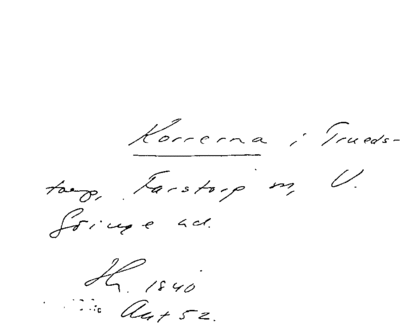 Korrerna i Trueds-
torp, Farstorp sn, V.
Göinge hd.
Jh. 1840
Akt 52.